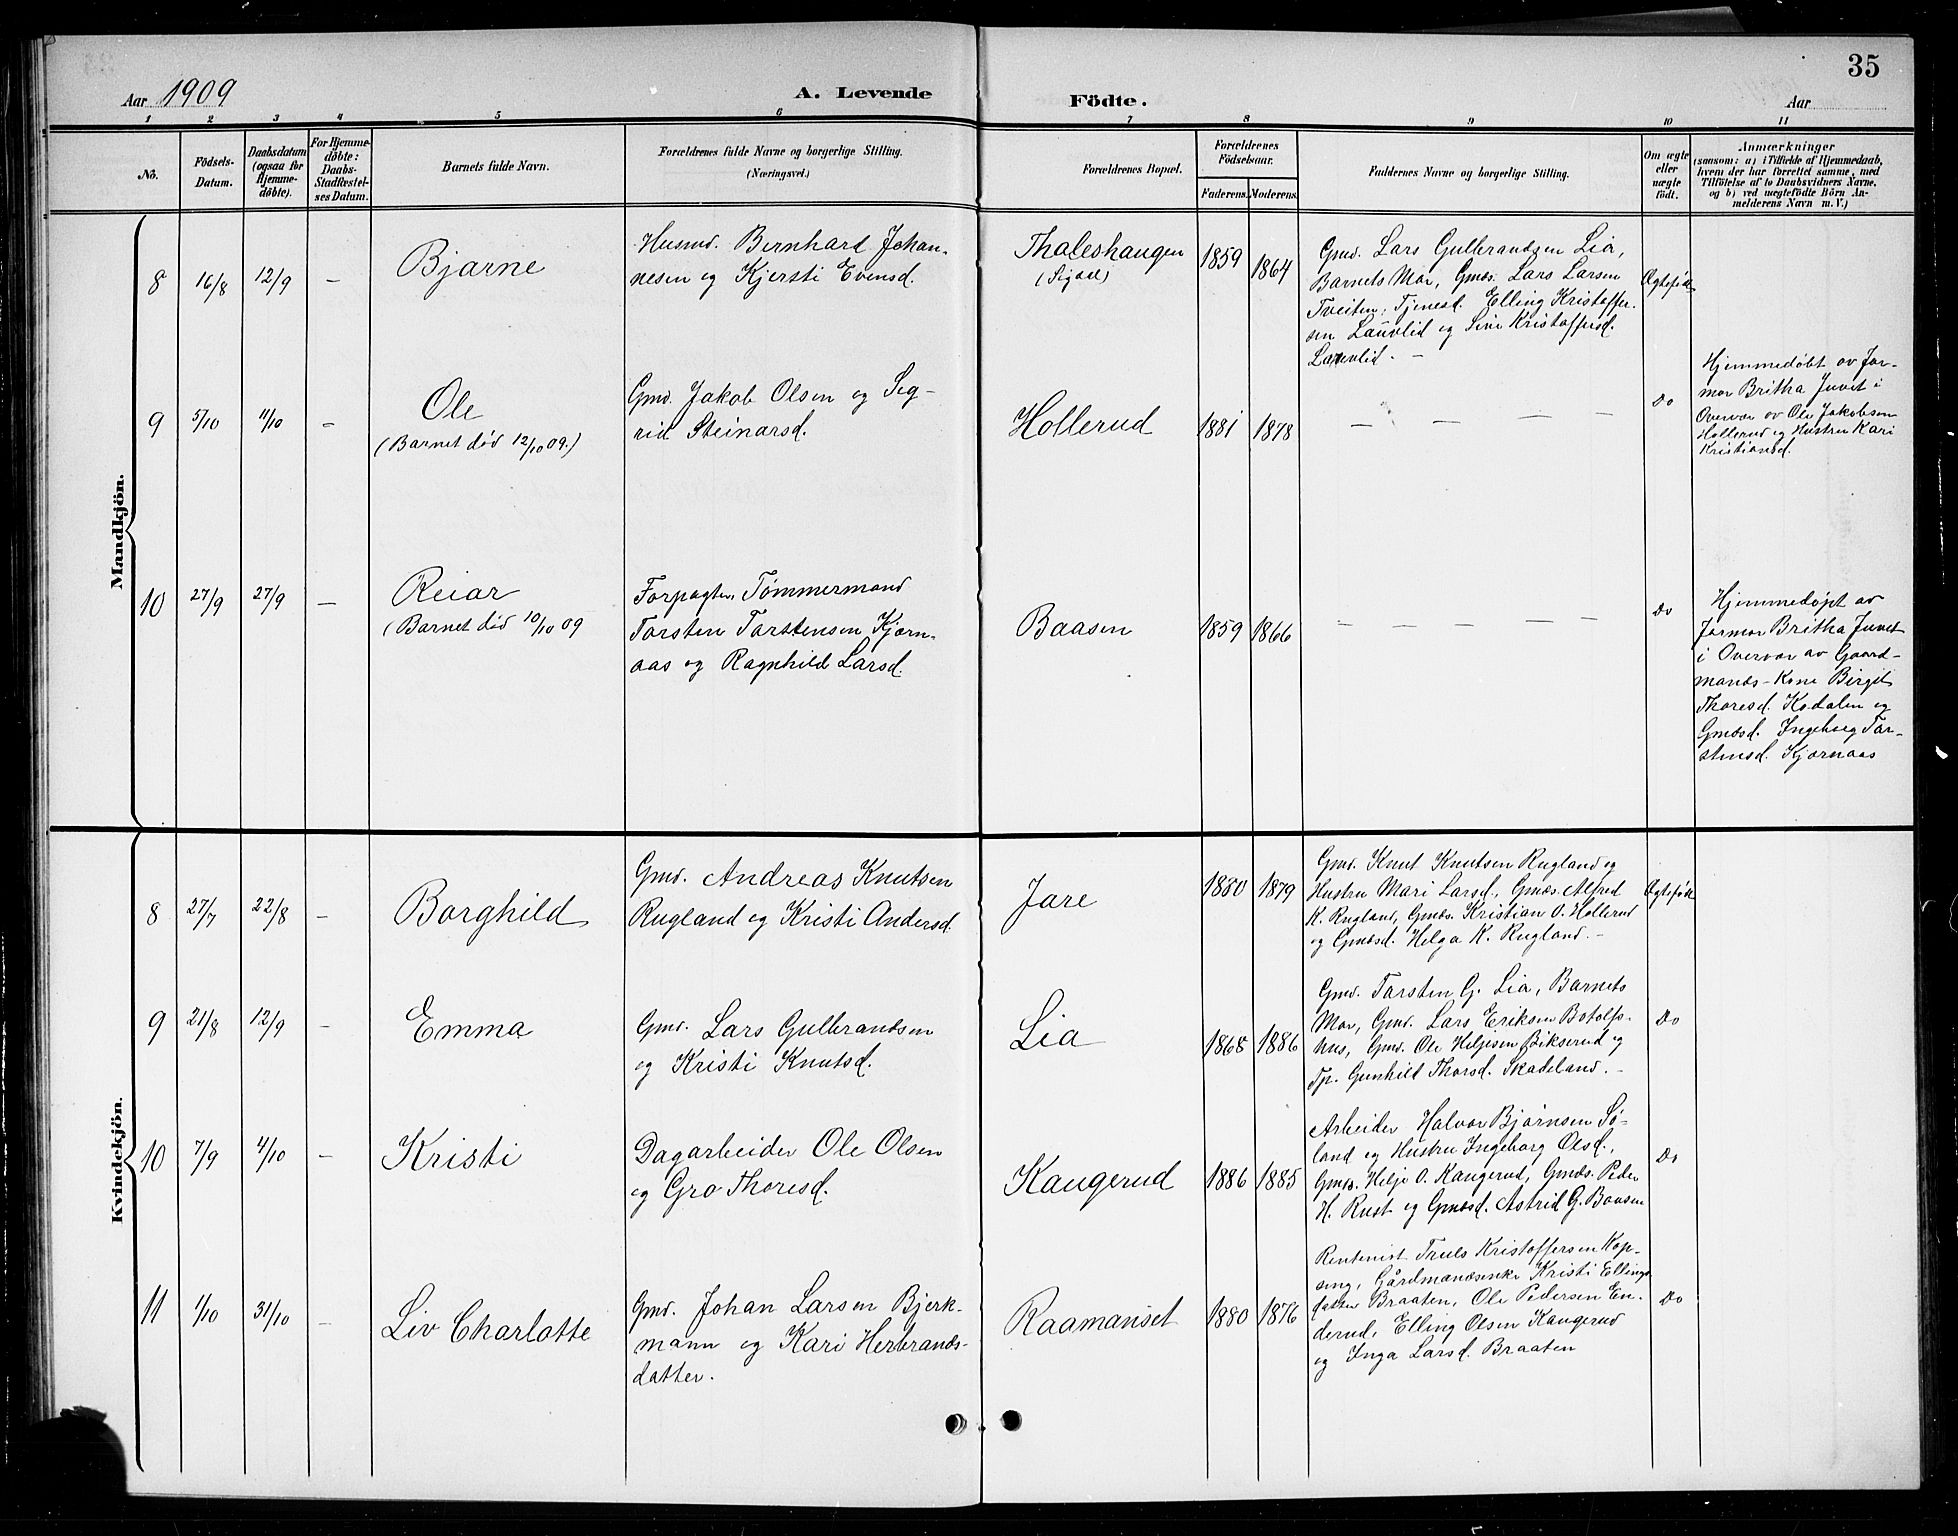 35
Aar 1909
A. Levende
Födte.
Aar
1 2 3 4 5 6 7 8 9 10 11
No.
Födsels-
Datum.
Daabsdatum
(ogsaa for
Hjemme-
döbte).
For Hjemme-
döbte:
Daabs-
Stadfæstel-
ses Datum.
Barnets fulde Navn.
Forældrenes fulde Navne og borgerlige Stilling.
(Næringsvei.)
Forældrenes Bopæl.
Forældrenes
Födselsaar.
Faderens.
Moderens.
Faddernes Navne og borgerlige Stilling.
Om ægte
eller
uægte
födt.
Anmærkninger
(saasom: a) i Tilfælde af Hjemmedaab,
hvem der har forrettet samme, med
Tilföielse af to Daabsvidners Navne,
og b) ved uægtefödte Börn An-
melderens Navn m. V.)
Mandkjön.
8
16/8
12/9
—
Bjarne
Husmd. Bernhard Johan-
nesen og Kjersti Evensd.
Thaleshaugen
(Sigdal)
1859
1864
Gmd. Lars Gulbrandsen Lia,
Barnets Mor, Gmds. Lars Larsen
Tveiten, Tjenesd. Elling Kristoffer-
sen Lauvlid og Sine Kristoffersd.
Lauvlid. —
Ægtefødt
9
5/10
11/10
—
Ole
(Barnet død 12/10 09.)
Gmd. Jakob Olsen og Sig-
rid Steinarsd.
Hollerud
1881
1878
— — — — —
Do
Hjemmedøbt av Jor-
mor Britha Juvet i
Overvær av Ole Jakobsen
Hollerud og Hustru Kari
Kristiansd.
10
27/9
27/9
—
Reiar
(Barnet død 10/10 09
Forpagter, Tømmermand
Torsten Torstensen Kjørn-
aas og Ragnhild Larsd.
Baasen
1859
1866
— — — — — —
Do
Hjemmedøpt av
Jormor Britha Juvet
i Overvær av Gaard-
mands-Kone Birgit
Thoresd. Kodalen og
Gmdsd. Ingeborg Tor-
stensd. Kjørnaas
Kvindekjön.
8
27/7
22/8
—
Borghild
Gmd. Andreas Knutsen
Rugland og Kristi Andersd.
Jare
1880
1879
Gmd. Knut Knutsen Rugland og
Hustru Mari Larsd., Gmds. Alfred
K. Rugland, Gmds. Kristian O. Hollerud
og Gmdsd. Helga K. Rugland. —
Ægtefødt
9
21/8
12/9
—
Emma
Gmd. Lars Gulbrandsen
og Kristi Knutsd.
Lia
1868
1886
Gmd. Torsten G. Lia, Barnets
Mor, Gmd. Lars Eriksen Botolfs-
hus, Gmd. Ole Helgesen Bikserud og
Tp. Gunhild Thorsd. Skadeland. —
Do
10
7/9
4/10
—
Kristi
Dagarbeider Ole Olsen
og Gro Thoresd.
Kaugerud
1886
1885
Arbeider Halvor Bjørnsen Sø-
land og Hustru Ingeborg Olsd.,
Gmds. Helje O. Kaugerud, Gmds. Peder
H. Rust og Gmdsd. Astrid G. Baasen
Do
11
1/10
31/10
—
Liv Charlotte
Gmd. Johan Larsen Bjerk-
mann og Kari Herbrands-
datter.
Raamanset
1880
1876
Rentenist Truls Kristoffersen Kop-
seng, Gårdmandsenke Kristi Ellings-
datter Braaten, Ole Pedersen En-
derud, Elling Olsen Kaugerud
og Inga Larsd. Braaten
Do